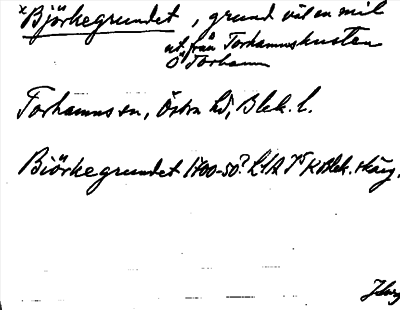 x Björkegrundet, grund väl en mil
ut från Torhamnskusten
O Torhamn
Torhamns sn, Östra hd, Blek. l.
Biörkegrundet 1700-50? LSA K Blek. skärg.